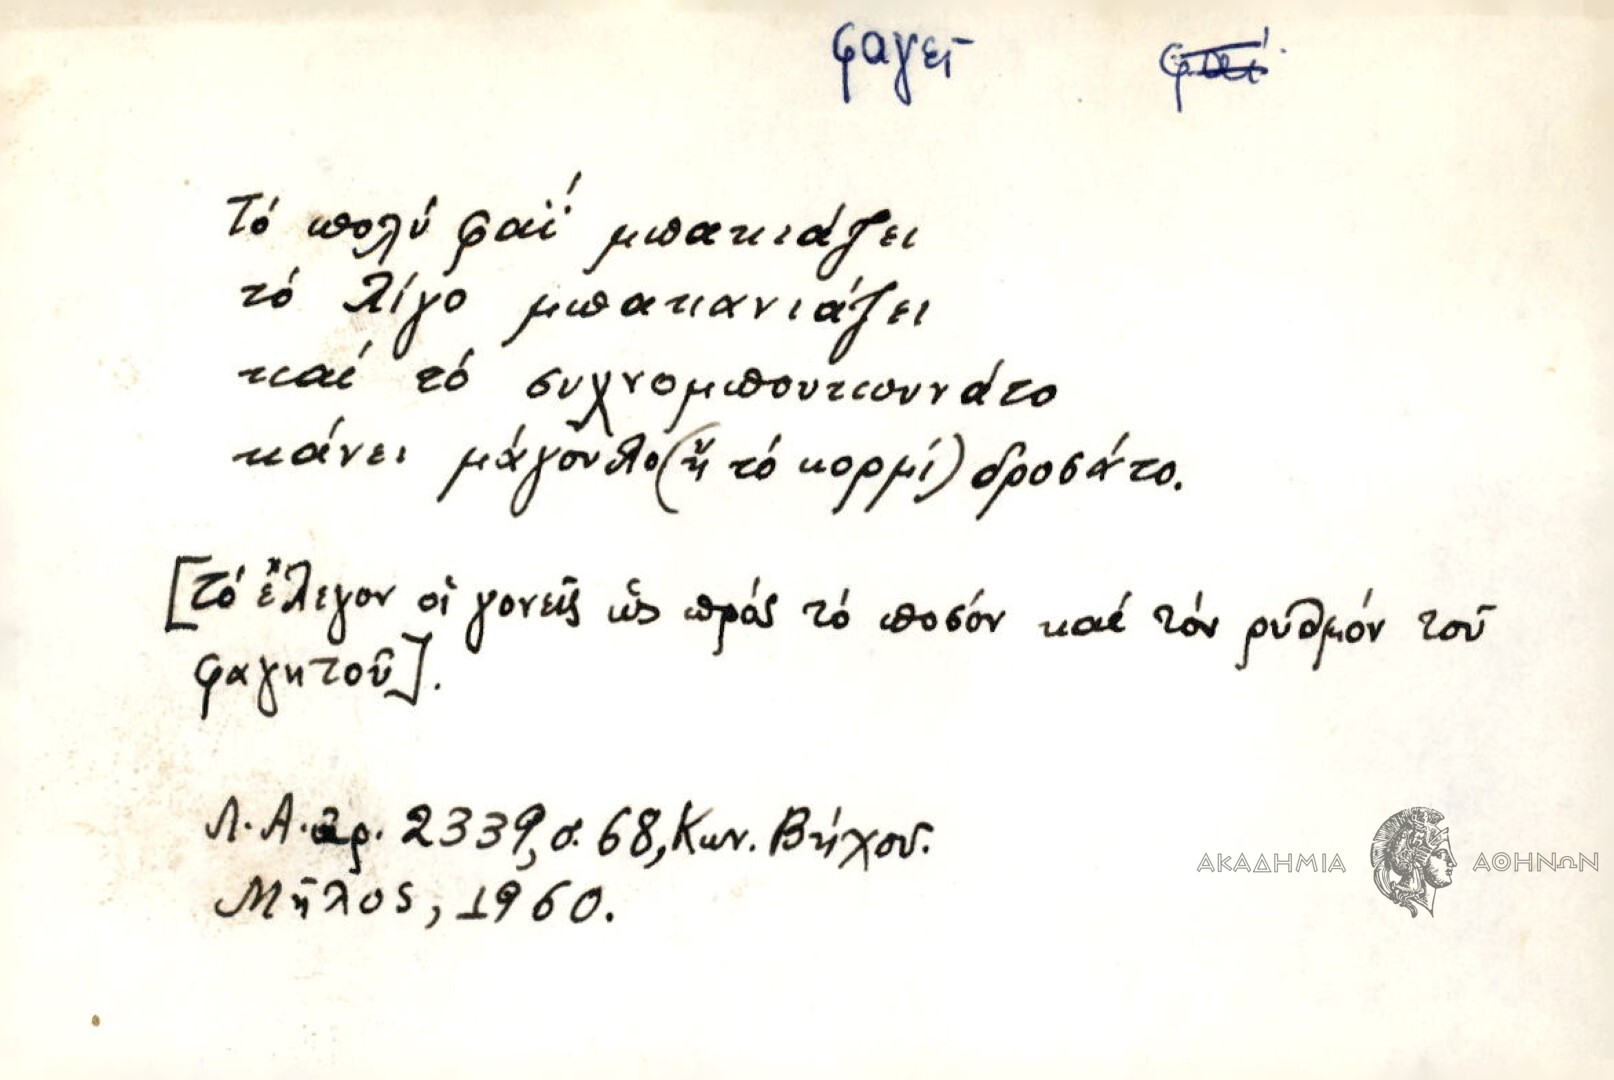 φαγεῖ φαΐ
Τό πολύ φαΐ μπακιάζει
τό λίγο μπακανιάζει
καί τό συχνομπουκουνάτο
κάνει μάγουλο (ἤ τό κορμί) δροσάτο.
[Τό ἔλεγον οἱ γονεῖς ὡς πρός τό ποσόν καί τόν ρυθμόν τοῦ
φαγητοῦ].
Λ.Α. ἀρ. 2339, σ. 68, Κων. Βήχου.
Μῆλος, 1960.
ΑΚΑΔΗΜΙΑ ΑΘΗΝΩΝ